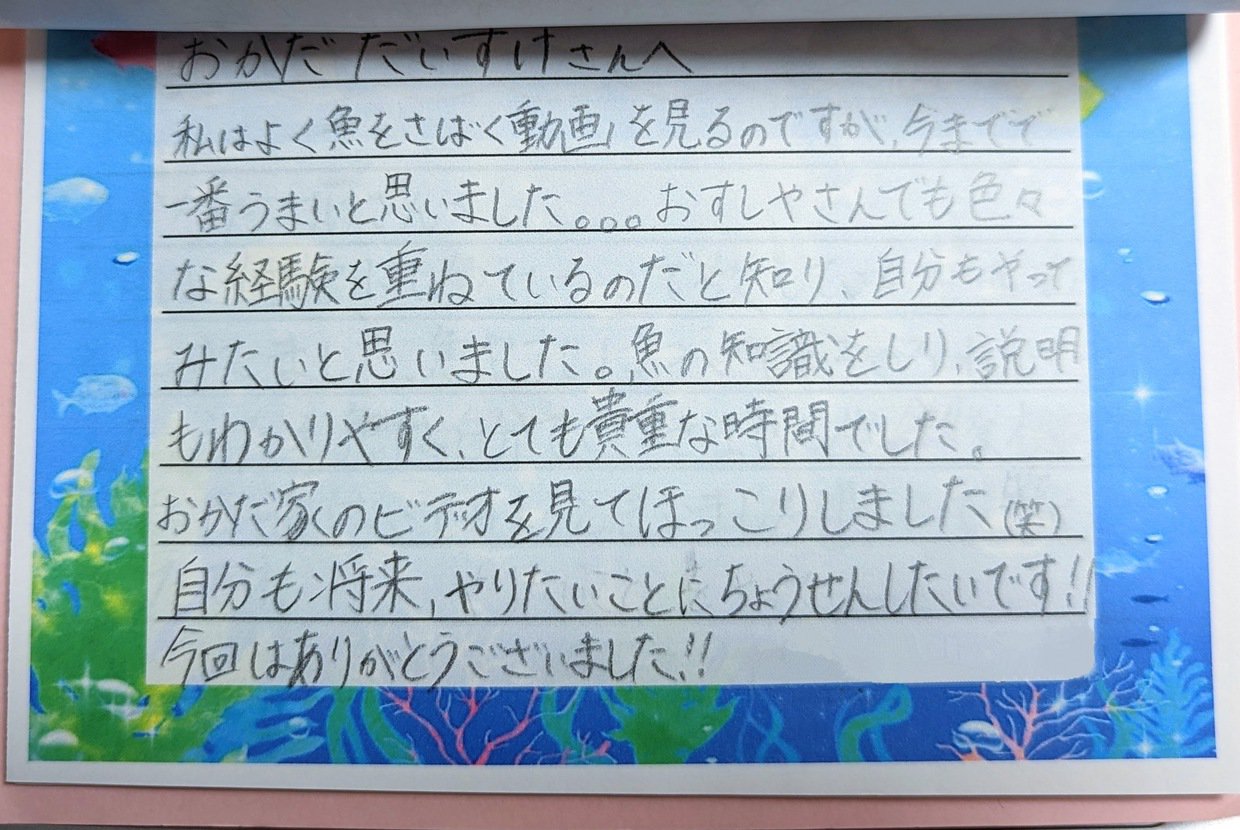 おかだ だいすけさんへ
私はよく魚をさばく動画を見るのですが、今までで
一番うまいと思いました。。。おすしやさんでも色々
な経験を重ねているのだと知り、自分もやって
みたいと思いました。魚の知識をしり、説明
もわかりやすく、とても貴重な時間でした。
おかだ家のビデオを見てほっこりしました(笑)
自分も将来、やりたいことにちょうせんしたいです!!
今回はありがとうございました!!